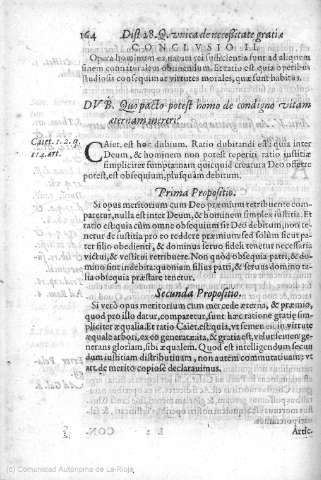 164 Dist. 28. Q. vnica de necessitate gratiæ
CONCLVSIO II.
Opera hominum ex natura vel sufficientia sunt ad aliquem
finem connaturalem obtinendum. Et ratio est quia operibus
studiosis consequimur virtutes morales, quæ sunt habitus.
DVB. Quo pacto potest homo de condigno vitam
æternam mereri?
Caiet. 1. 2. q.
114. art.
CAiet. est hoc dubium. Ratio dubitandi est: quia inter
Deum, & hominem non potest reperiri ratio iustitiæ
simpliciter sumpta: nam quicquid creatura Deo offerre
potest, est obsequium, plusquàm debitum.
Prima Propositio.
Si opus meritorium cum Deo præmium retribuente com-
paretur, nulla est inter Deum, & hominem simplex iustitia. Et
ratio est: quia cùm omne obsequium sit Deo debitum, non te-
netur de iustitia pro eo reddere præmium: sed solùm sicut pa-
ter filio obedienti, & dominus seruo fideli tenetur necessaria
victui, & vestitui retribuere. Non quòd obsequia patri, & do-
mino sint indebita: quoniam filius patri, & seruus domino ta-
lia obsequia præstare tenetur.
Secunda Propositio.
Si verò opus meritorium cum mercede æterna, & præmio,
quod pro illo datur, comparetur, sunt hæc ratione gratiæ sim-
pliciter æqualia. Et ratio Caiet. est: quia, vt semen in virtute
æquale arbori, ex eo generatæ ita, & gratia est, velut semen ge-
nerans gloriam, sibi æqualem. Quod est intelligendum secun-
dum iustitiam distributiuam, non autem commutatiuam: vt
art. de merito copiosè declarauimus.
Artic.
(c) Comunidad Autónoma de La Rioja